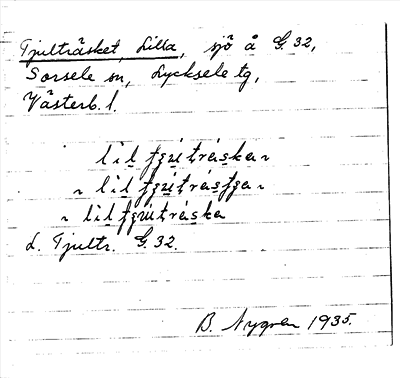 Tjulträsket, Lilla, sjö å G. 32,
Sorsele sn, Lycksele tg,
Västerb. l.
lil
lil
lil
L. Tjultr. G. 32.
B. Nygren 1935.